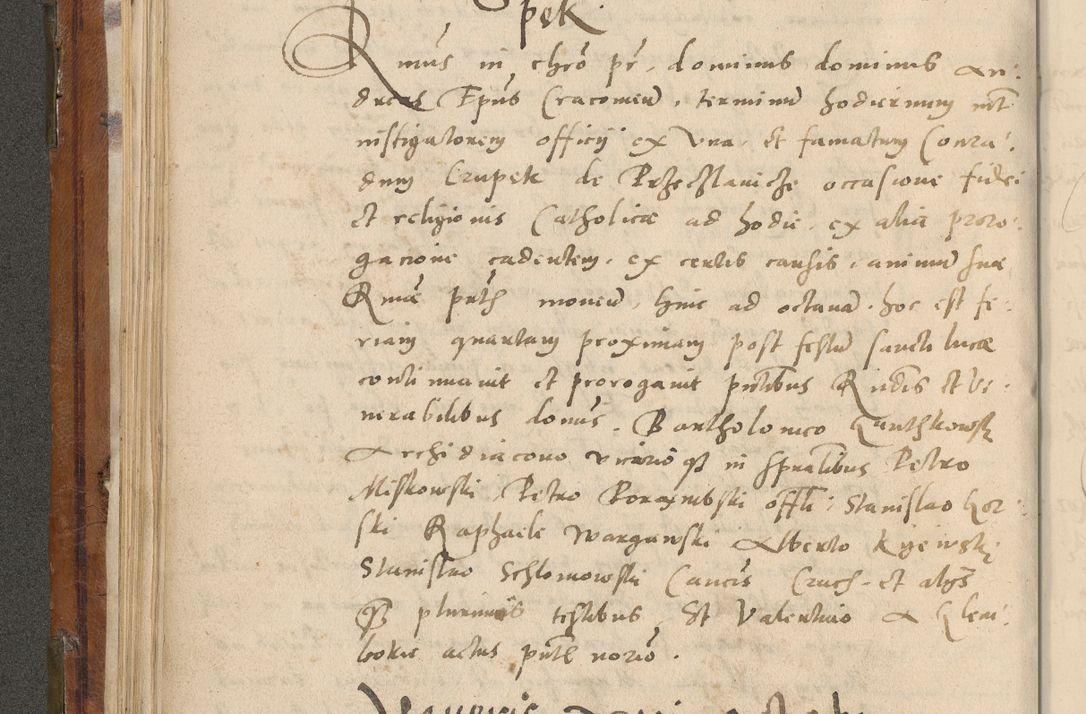 pek.
Rmus in chro pr, dominus dominus An:
dreas Epus Cracovien, terminum hodiernum int
instigatorem officij ex Una, et famatum Conra:
dum Crupek de Przeczlawicze occasione fidei
et religionis Catholicæ ad hodie, ex alia proro:
gacione cadentem, ex certis causis, animum suæ
Rmæ ptis moven, hinc ad octavam, hoc est fe:
riam quartam proximam post festum sancti lucæ
continuavit et prorogavit pntibus Rndis et Ve:
nerabilibus donis, Bartholomeo Ganthkowski
Archidiacono vicario qz in spralibus Petro
Miskowski Petro Porazimbski offli, Stanislao Gor:
ski Raphaele Wargawski Alberto Kijewski
Stanislao Schlomowski Cancis Crach. et alys
qz plurimis testibus, Et Valentino A Glem:
bokie actus pntis norio.